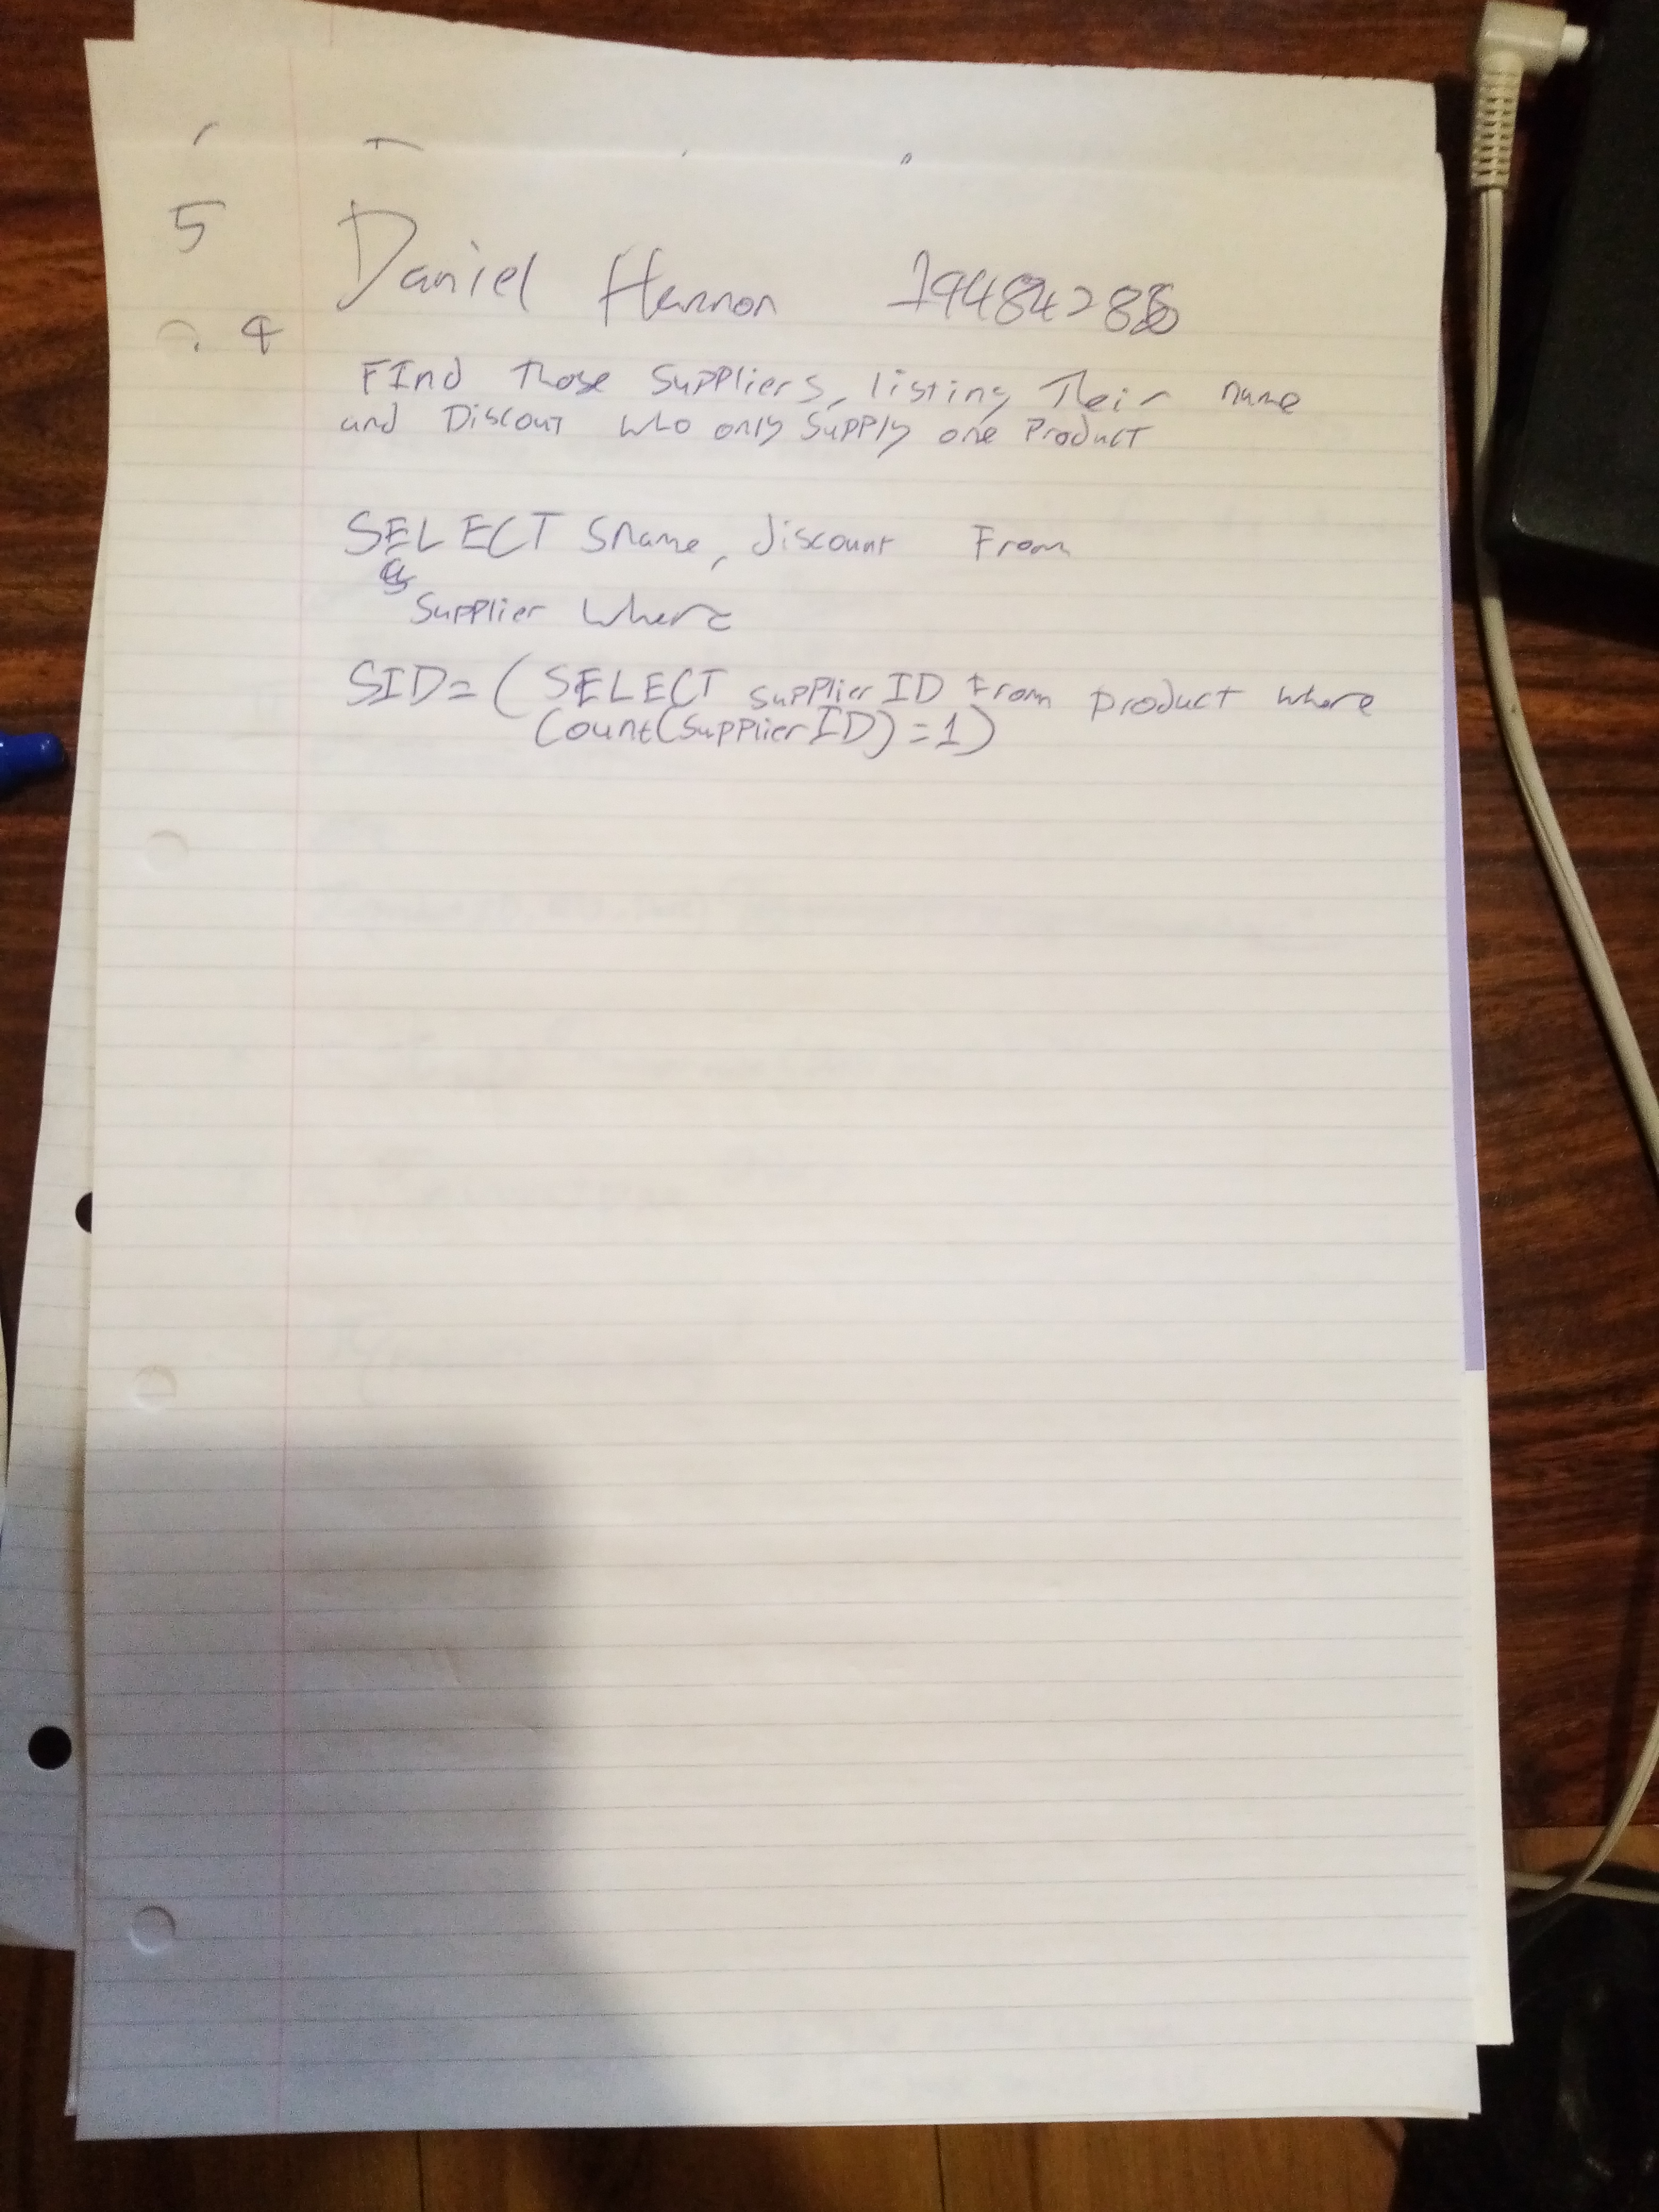 5 Daniel Hannon
4
FInd those suppliers, listing Their name
and Discout who only supply one Product
SELECT Sname, discount From
Supplier where
SID= ( SELECT supplierID From product where
Count(supplierID)=1)